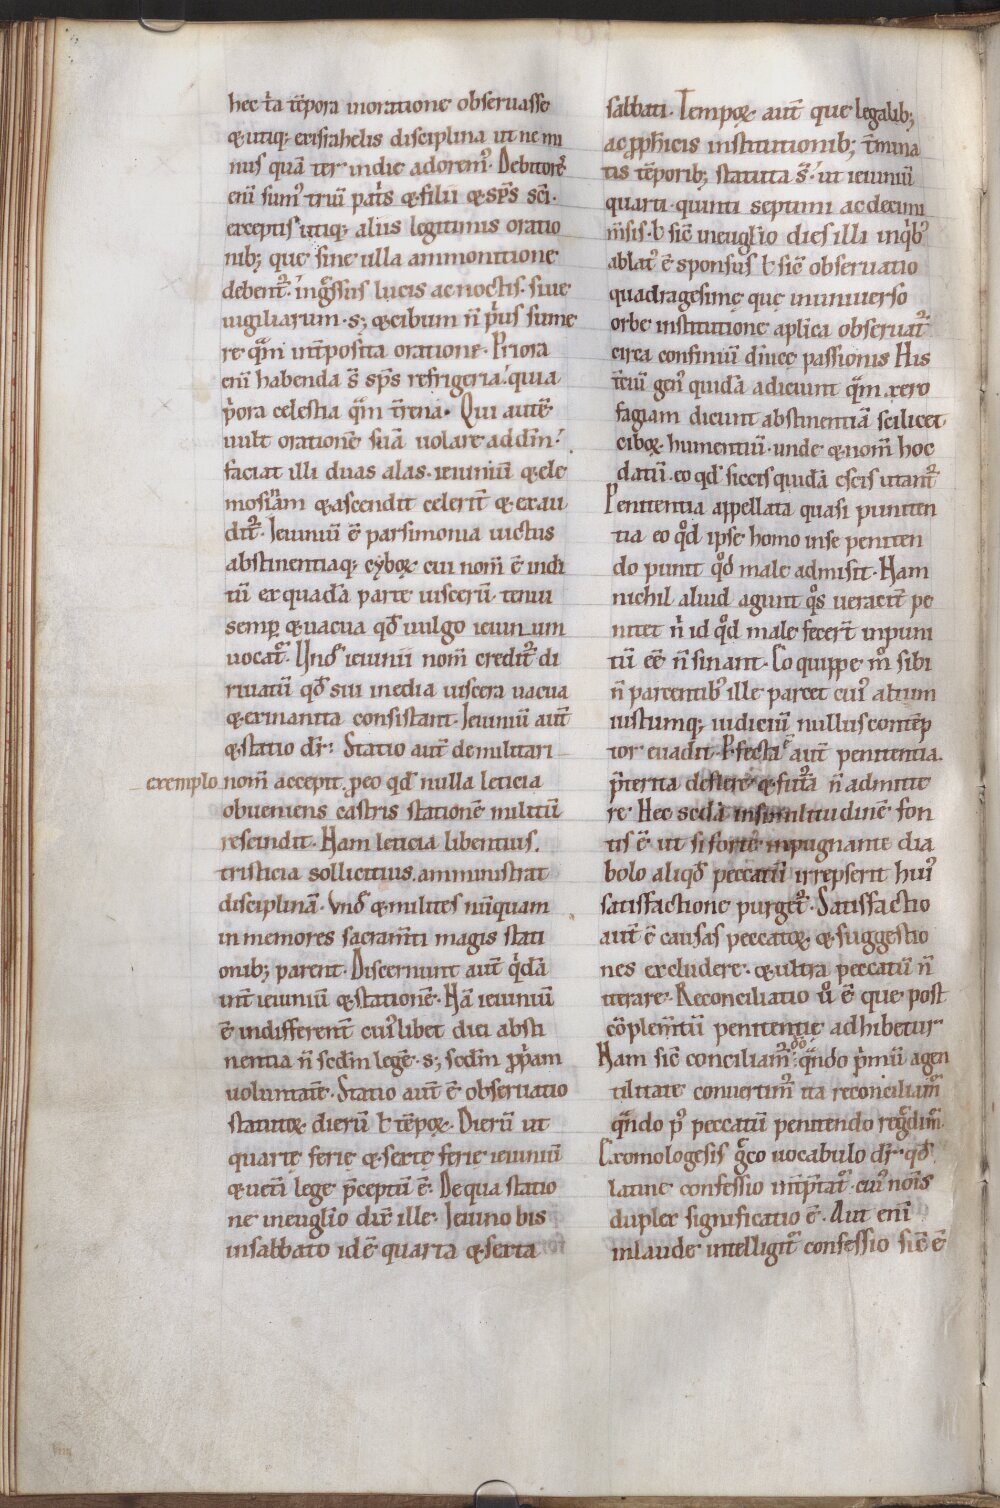 hec t͛a tēpora inoratione obseruasse
&utiq; exisrahelis disciplina ut ne mi
nus quā ter indie adorem᷒. Debitores
eni͂ sum᷒ triū pat͛s &filii &sp̄s sc̄i.
exceptis utiq; aliis legitimis oratio
nib; que sine ulla ammonitione
debent᷒. ing̃ssus lucis ac noctis. siue
uigiliarum. s; &cibum n̄ p͛us sume
re q̃m int͛posita oratione. Priora
eni͂ habenda s̄ sp̄s refrigeria quia
p͛ora celestia q̃m t͛rena. Qui autē
uult orationē suā uolare ad dm̄.
faciat illi duas alas. ieiuniū &ele
mosinam &ascendit celerit͛ &exau
dit᷒. Ieiuniū ē parsimonia uictus
abstinentiaq; cyboꝝ cui nom̄ ē indi
tū ex quadā parte uiscerū tenui
semp̲ &uacua qd̄ uulgo ieiunum
uocat᷒. Und̄ ieiunii nom̄ credit᷒ di
riuatū qd̄ sui inedia uiscera uacua
&exinanita consistant. Ieiuniū aut͛
&statio dr̄. Statio aut͛ demilitari
exemplo nom̄ accepit. ꝓeo qd̄ nulla leticia
obueniens castris stationē militū
rescindit. Nam leticia libentius.
tristicia sollicitius. amministrat
disciplinā. Und̄ &milites nūquam
inmemores sacram̄ti magis stati
onib; parent. Discernunt aut͛ q͛dā
int͛ ieiuniū &stationē. Nā ieiuniū
ē indifferent͛ cui᷒libet diei absti
nentia n̄ sedm̄ legē. s; sedm̄ ꝓp͛am
uoluntatē. Statio aut͛ ē obseruatio
statutoꝝ dierū ł tēpoꝝ. Dierū ut
quartę ferię &sextę ferię ieiuniū
&ueti͂ lege p̄ceptū ē. De qua statio
ne ineuglio dix̄ ille. Ieiuno bis
insabbato id ē quarta &sexta
sabbati. Tempoꝝ aut͛ que legalib;
ac ꝓph̄icis institutionib; t͛mina
tis tēporib; statuta s̄. ut ieiuniū
quarti. quinti septimi ac decimi
m̄sis. ł sic̄ ineuglio dies illi inq͛b᷒
ablat᷒ ē sponsus ł sic̄ obseruatio
quadragesimę quę inuniuerso
orbe institutione aplica obseruat᷒
circa confiniū dn̄icę passionis His
t͛ciū gen᷒ quidā adiciunt q̃m xero
fagiam dicunt abstinentiā scilicet
ciboꝝ humentiū. unde &nom̄ hoc
datū. eo qd̄ siccis quidā escis utant᷒
Penitentia appellata quasi puniten
tia eo qd̄ ipse homo inse peniten
do punit qd̄ male admisit. Nam
nichil aliud agunt q̊s ueracit͛ pe
nitet n͛ id qd̄ male fecer̄t inpuni
tū eē n̄ sinant. Eo quippe m̊ sibi
n̄ parcentib᷒ ille parcet cui᷒ altum
iustumq; iudiciū nullus contēp
tor euadit. Perfecta ē aut͛ penitentia.
p̄terita deflere &fut᷒a n̄ admitte
re. Hec sc̄dā insimilitudinē fon
tis ē ut si forte inpugnante dia
bolo aliqd̄ peccatū irrepserit hui᷒
satisfactione purget᷒. Satisfactio
aut͛ ē causas peccatoꝝ &suggestio
nes excludere. &ultra peccatū n̄
iterare. Reconciliatio ů ē que post
cōplem̄tū penitentię adhibetur
Nam sic̄ conciliam᷒ do q̃ndo p͛mū agen
tilitate conuertim᷒ ita reconciliam᷒
q̃ndo p᷒ peccatū penitendo reg̃dim᷒.
Exomologesis g̃co uocabulo dr̄. qd̄
latine confessio int͛p̄tat᷒. cui᷒ nōis
duplex significatio ē. Aut eni͂
inlaude intelligit᷒ confessio sic̄ ē